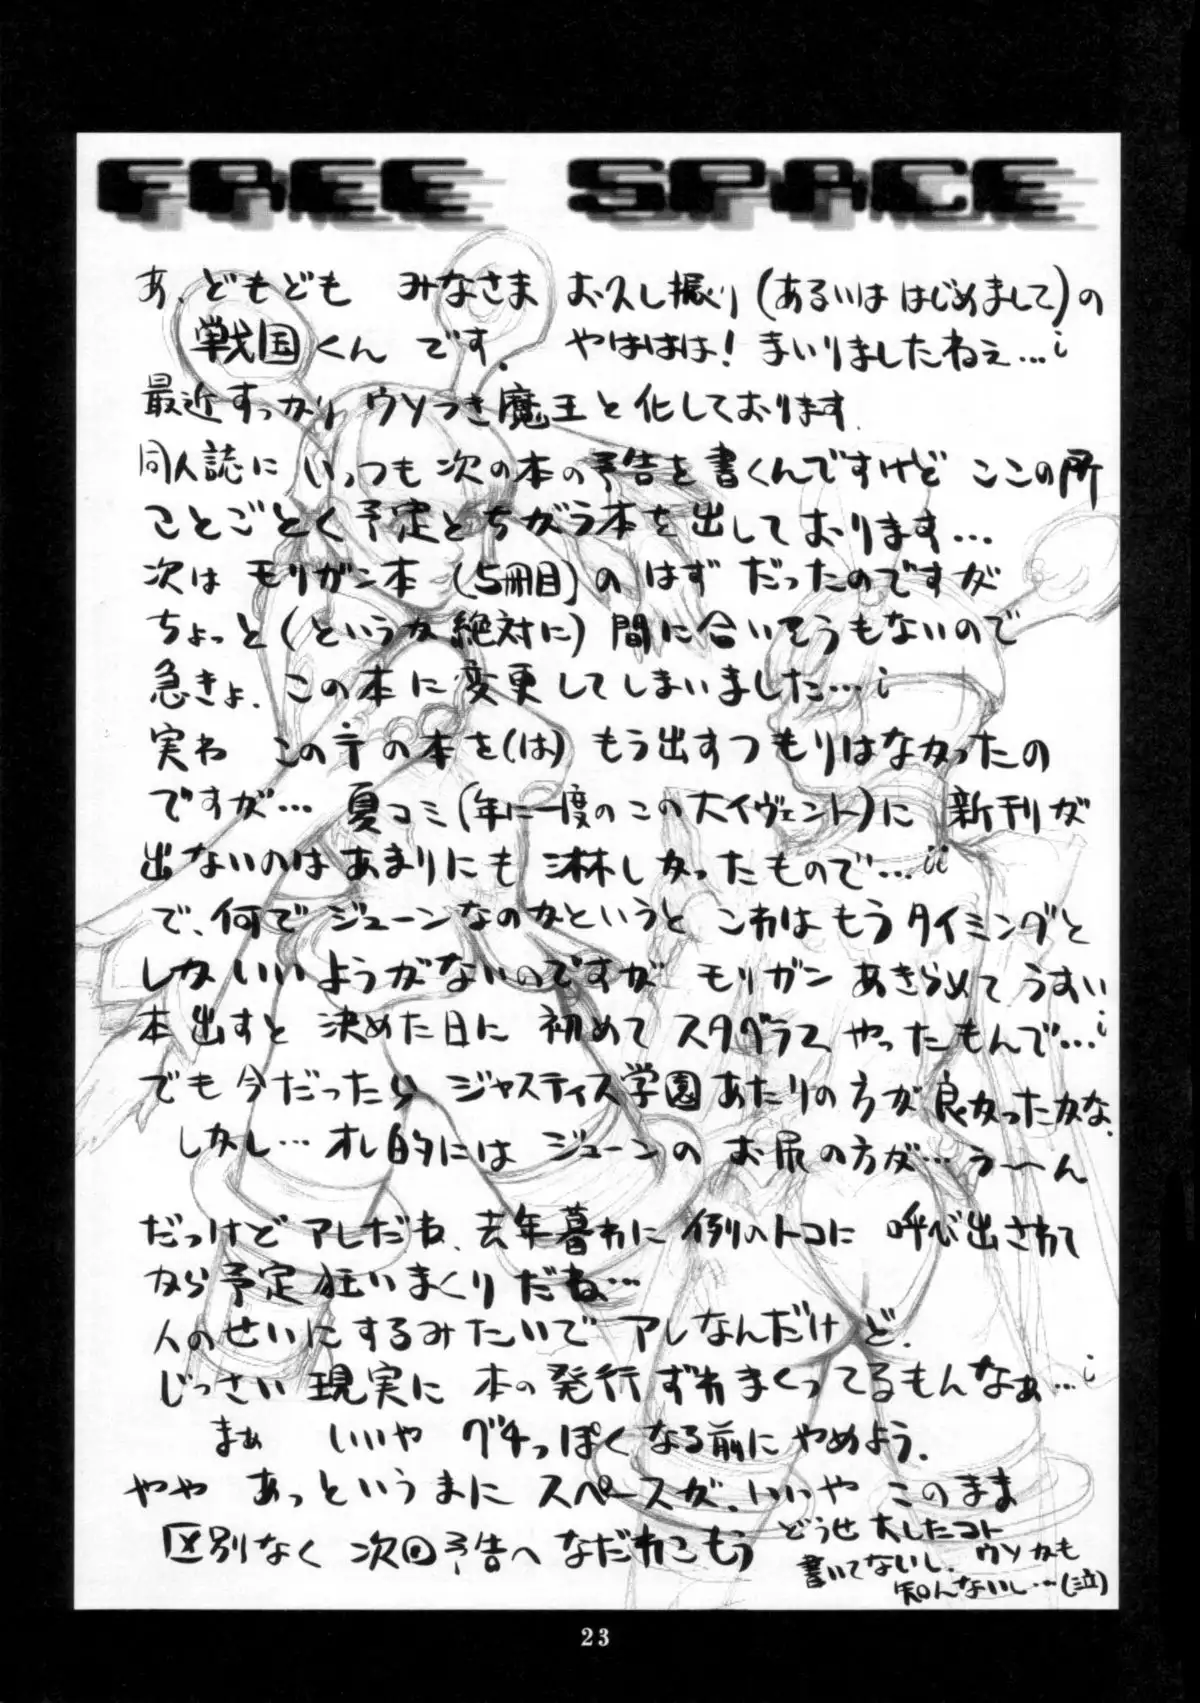 FREE SPACE
あ、どもども みなさま お久し振り(あるいは はじめまして)の
戦国くん です. やははは! まいりましたねぇ…
最近すっかり ウソつき魔王と化しております.
同人誌に いっつも 次の本の予告を書くんですけど ここの所
ことごとく予定とちがう本を出しております…
次は モリガン本 (5冊目)の はず だったのですが
ちょっと(というか絶対に)間に合いそうもないので
急きょ、この本に変更してしまいました…
実わ この手の本を(は) もう出すつもりはなかったの
ですが… 夏コミ(年に一度のこの大イヴェント)に 新刊が
出ないのはあまりにも 淋しかったもので…
で、何で ジューンなのかというと これは もう タイミングと
しかいいようがないのですが モリガン あきらめて うすい
本出すと 決めた日に 初めて スタグラス やったもんで…
でも今だったら ジャスティス学園あたりの方が良かったかな.
しかし… オレ的には ジューンの お尻の方が… う〜ん
だっけど アレだね、去年暮れに 例のトコに 呼び出されて
から予定狂いまくりだね…
人のせいにするみたいで アレなんだけど.
じっさい 現実に 本の発行 ずれまくってるもんなぁ…
まぁ いいや グチっぽくなる前に やめよう.
やや あっというまに スペースが、いいや このまま
区別なく 次回予告へ なだれこもう
どうせ大したコト
書いてないし、ウソかも
知んないし…(泣)
23